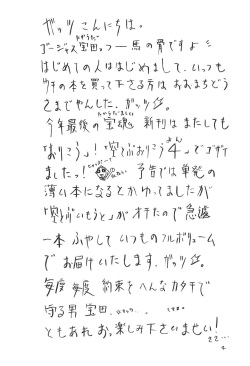 ガッツ こんにちは。
ゴージャス宝田っつー馬の骨ですよ
はじめての人ははじめまして、いつも
ウチの本を買って下さる方は おまちどう
さまでやんした、ガッツ
今年最後の宝魂 新刊は またしても
「おりこう」!「空とぶおりこう4」でゴザイ
ましたっ! 予告では単発の
薄い本になるとかゆってましたが
「空とぶいもうと」がオチたので急遽
一本 ふやして いつものフルボリューム
で お届けいたします、ガッツ
毎度毎度 約束をヘンなカタチで
守る男 宝田
ともあれお楽しみ下さいませい!